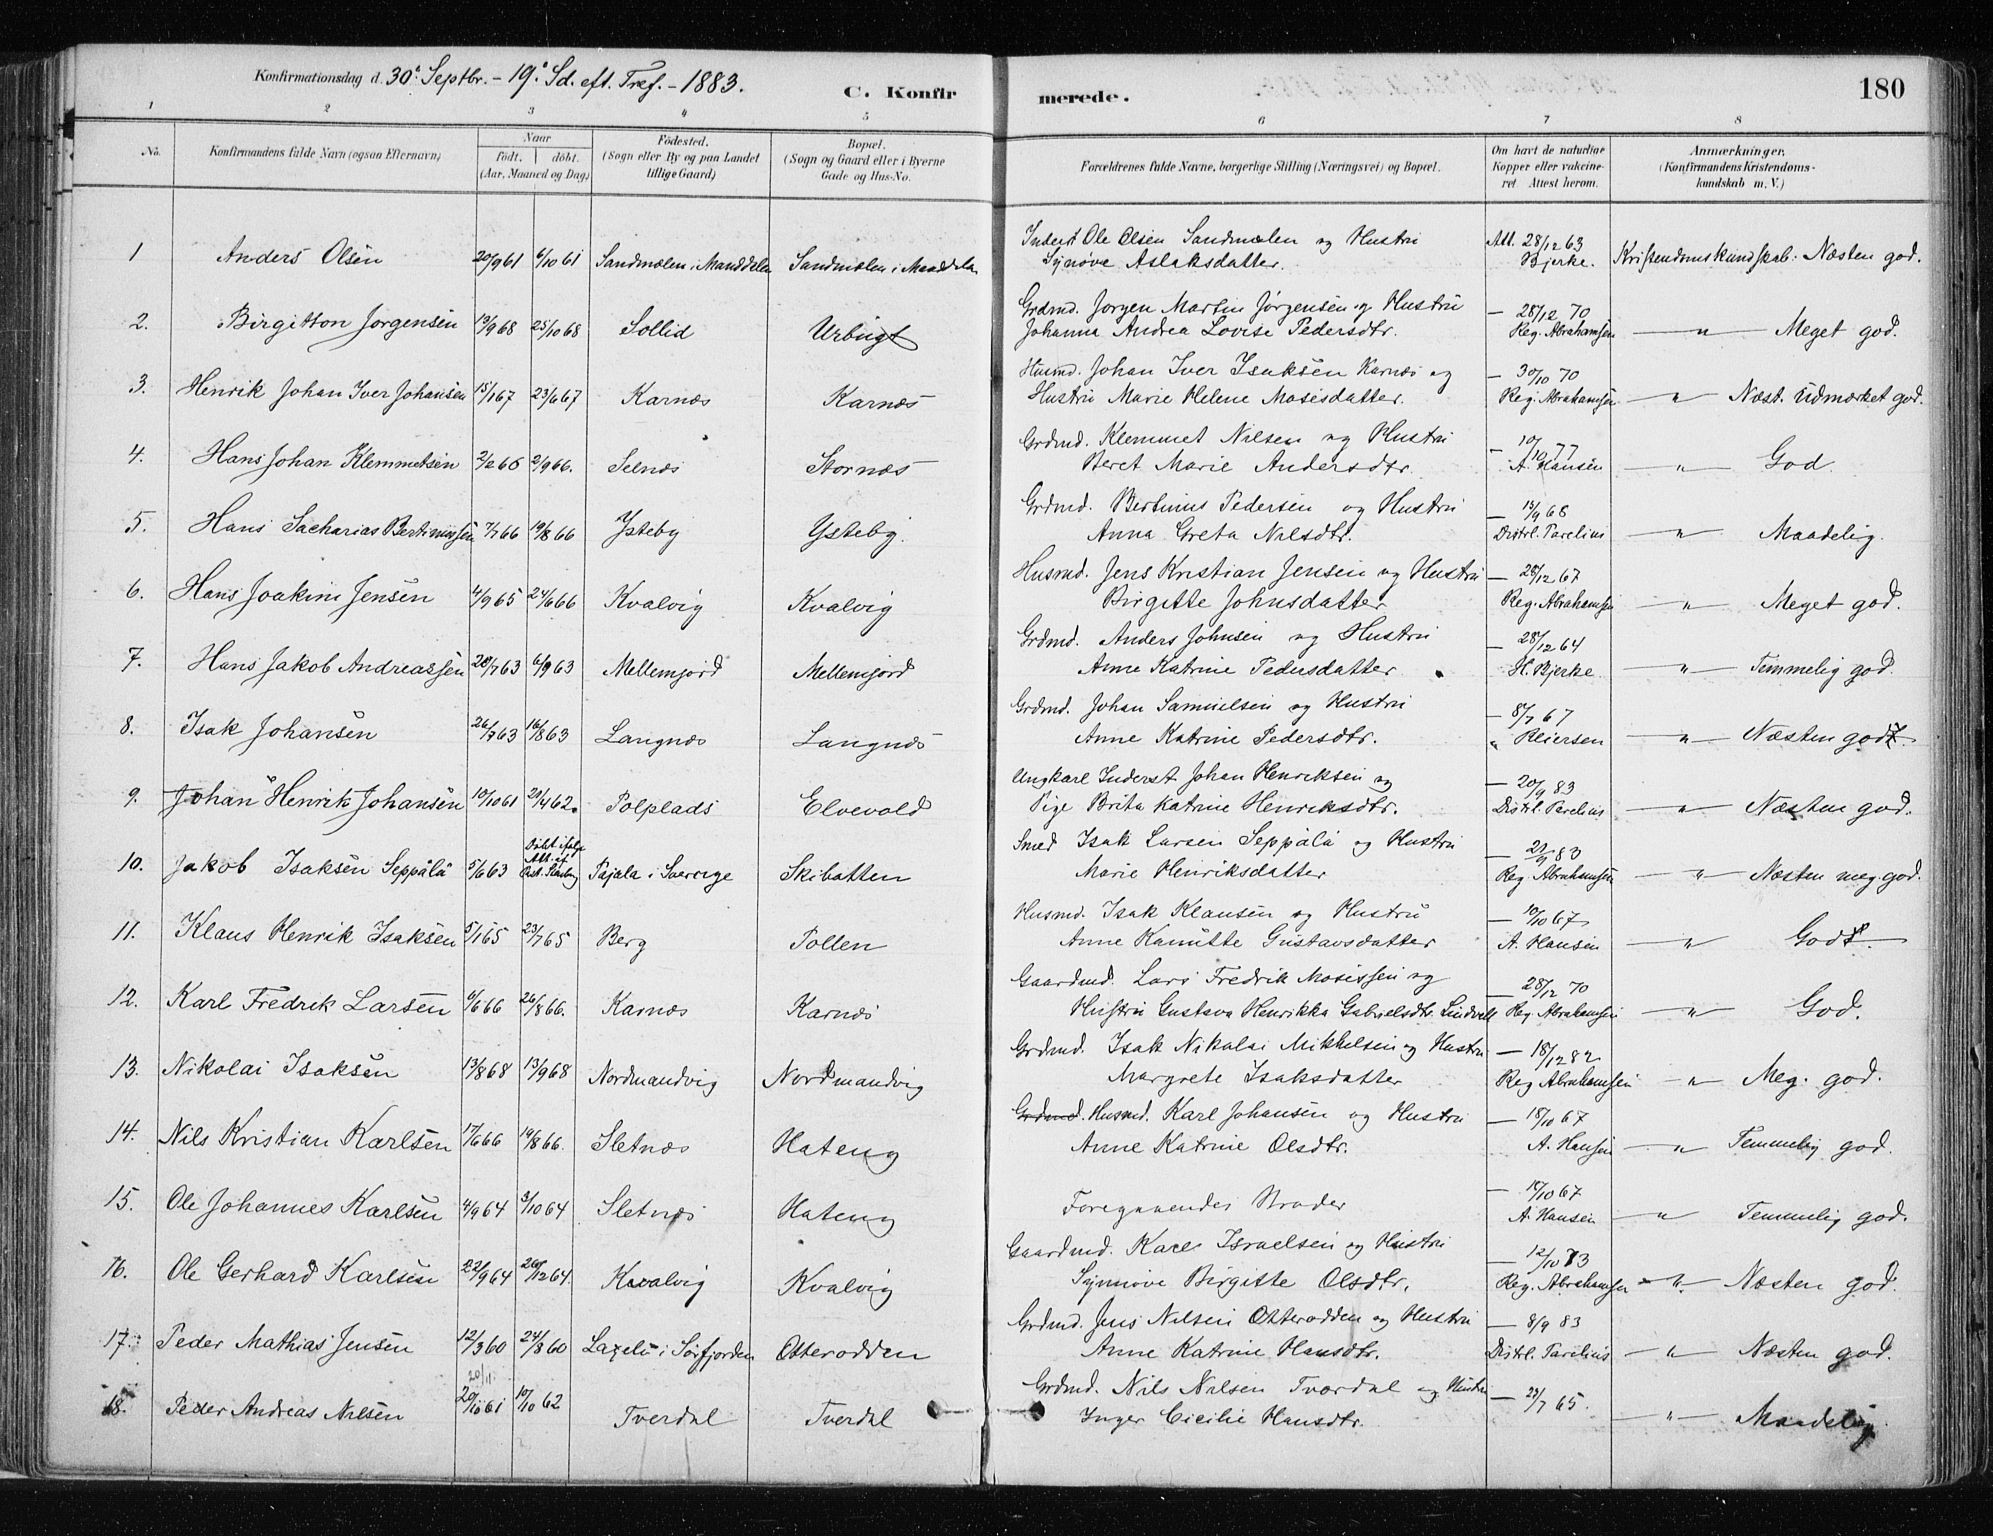 Konfirmationsdag d. 30te Septbr. - 19de Sd. eft. Tref. - 1883.
C. Konfirmerede.
180
1 2 3 4 5 6 7 8
No. Konfirmandens fulde Navn (ogsaa Efternavn) Naar født. døbt. (Aar, Maaned og Dag) Fødested. (Sogn eller By og paa Landet tillige Gaard) Bopæl. (Sogn og Gaard eller i Byerne Gade og Hus-No. Forældrenes fulde Navne, borgerlige Stilling (Næringsvei) og Bopæl. Om havt de naturlige Kopper eller vakcineret Attest herom. Anmærkninger, (Konfirmandens Kristendomskundskab m. V.)
1 Anders Olsen 20/9 61 6/10 61 Sandmælen i Manddalen Sandmælen i Manddalen Inderst Ole Olsen Sandmælen og Hustru Att. 28/12 63
Synøve Aslaksdatter. Bjerke. Kristendomskundskab: Næsten god.
2. Birgitton Jørgensen 13/9 68 25/10 68 Sollid Urbugt Grdmd. Jørgen Martin Jørgensen og Hustru — 28/12 70
Johanna Andrea Lovise Pedersdtr. Reg. Abrahamsen — " — Meget god.
3. Henrik Johan Iver Johansen 15/1 67 23/6 67 Karnæs Karnæs Husmd. Johan Iver Isaksen Karnæs og — 30/10 70
Hustru Marie Helene Mosisdatter. Reg. Abrahamsen — " — Næst. Udmærket god.
4. Hans Johan Klemmetsen 2/2 66 2/9 66. Selnæs Stornæs Grdmd. Klemmet Nilsen og Hustru — 10/10 77
Beret Marie Andersdtr. A. Hansen — " — God.
5. Hans Sacharias Bertinussen 7/7 66 19/8 66 Ysteby Ysteby. Grdmd. Bertinus Pedersen og Hustru — 13/9 68
Anna Greta Nilsdtr. Distrl. Parelius — " — Maadelig.
6. Hans Joakim Jensen 4/9 65 24/6 66 Kvalvig Kvalvig Husmd. Jens Kristian Jensen og Hustru — 28/12 67
Birgitte Johnsdatter Reg. Abrahamsen — " — Meget god.
7. Hans Jakob Andreassen 28/7 63 6/9 63 Mellemjord Mellemjord Grdmd. Anders Johnsen og Hustru — 28/12 64
Anne Katrine Pedersdatter. H. Bjerke. — " — Temmelig god.
8. Isak Johansen 26/7 63 16/8 63 Langnæs Langnæs Grdmd. Johan Samuelsen og Hustru — 8/7 67
Anne Katrine Pedersdtr. " Reiersen — " — Næsten god.
9. Johan Henrik Johansen 10/10 61 29/4 62. Polplads Elvevold Ungkarl Inderst Johan Henriksen og — 20/9 83
Pige Brita Katrine Henriksdtr. Distrl. Parelius — " — Næsten god.
10. Jakob Isaksen Seppälä 5/6 63 Døbt ifølge Att. af Pajala i Sverrige Skibotten Smed Isak Larsen Seppälä og Hustru — 21/9 83
Marie Henriksdatter Reg. Abrahamsen — " — Næsten meg. god.
11. Klaus Henrik Isaksen 5/1 65 23/7 65 Berg Pollen Husmd. Isak Klausen og Hustru — 10/10 67
Anne Kanutte Gustavsdatter A. Hansen — " — God.
12. Karl Fredrik Larsen 6/6 66 26/8 66. Karnæs Karnæs Gaardmd. Lars Fredrik Mosissen og — 28/12 70
Hustru Gustava Henrikka Gabrielsdtr. Lindvall Reg. Abrahamsen — " — God.
13. Nikolai Isaksen 13/8 68 13/9 68 Nordmandvig Nordmandvig Grdmd. Isak Nikolai Mikkelsen og Hustru — 18/12 82
Margrete Isaksdatter Reg. Abrahamsen — " — Meg. god.
14. Nils Kristian Karlsen 17/6 66 19/8 66. Sletnæs Hateng Grdmd. Husmd. Karl Johansen og Hustru — 18/10 67
Anne Katrine Olsdtr. A. Hansen — " — Temmelig god.
15. Ole Johannes Karlsen 4/9 64 3/10 64 Sletnæs Hateng Foregaaendes Broder — 18/10 67
A. Hansen — " — Temmelig god.
16. Ole Gerhard Karlsen 22/9 64 26/12 64. Kvalvig Kvalvig Gaardmd. Karl Israelsen og Hustru — 12/10 73
Synnøve Birgitte Olsdtr. Reg. Abrahamsen — " — Næsten god.
17. Peder Mathias Jensen 12/3 60 24/8 60 i Sørfjorden Otterodden Grdmd. Jens Nilsen Otterodden og Hustru — 8/9 83
Anne Katrine Hansdtr. Distrl. Parelius — " — Næsten god.
20/11
18. Peder Andreas Nilsen 20/10 61 10/10 62 Tverdal Tverdal Grdmd. Nils Nilsen Tverdal og Hustru — 23/7 65.
Inger Cicilie Hansdtr. — " — Maadelig